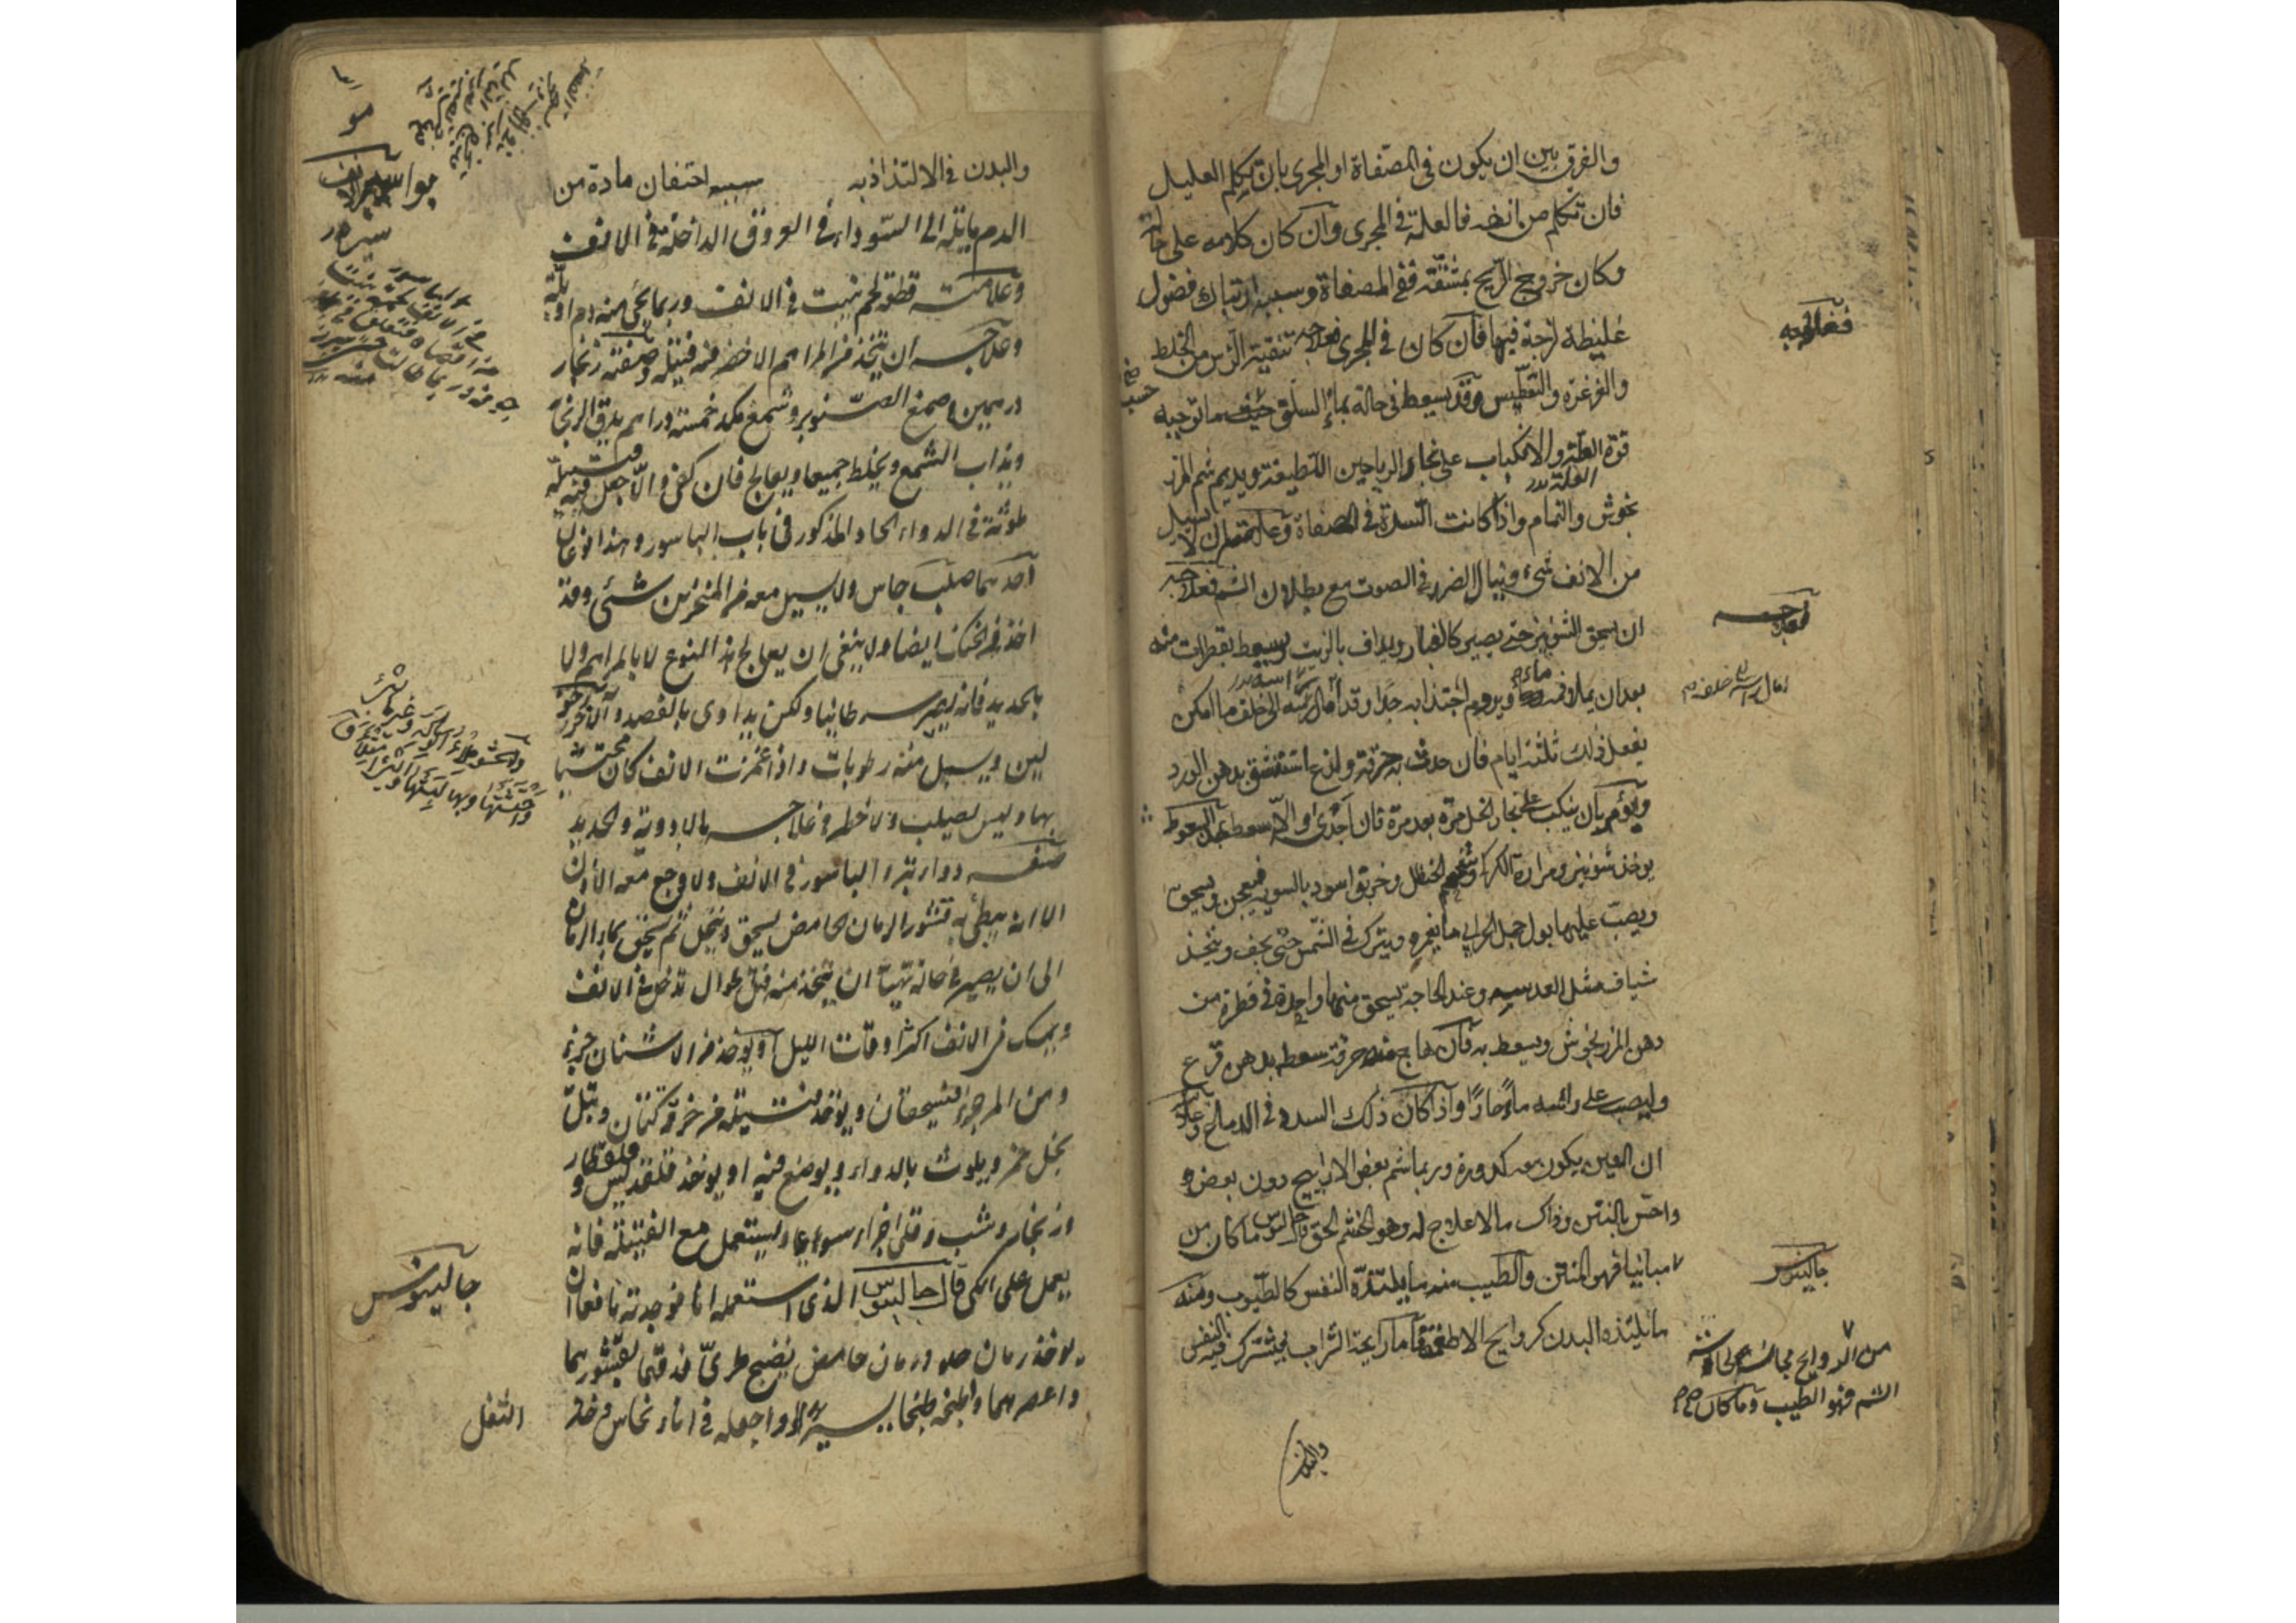 والفرق بين ان يكون فى المصفاة او المجرى بان يتكلم العليل
فان تكلم من انفه فالعلة فى المجرى وان كان كلامه على حاله
وكان خروج الريح بمشقة ففى المصفاة وسببه ارتباك فضول
غليظة لزجة فيها فان كان فى المجرى فعلاجه تنقية الرأس من الخلط
والغرغرة والتعطيس وقد يسعط فى حالة بماء السلق حسب ما توجبه
قوة العلة والانكباب على بخار الرياحين اللطيفة ويديم شم المرز
نجوش والنمام واذا كانت السدة فى المصفاة وعلامته ان لا يسيل
من الانف شىء وينال الضرر فى الصوت مع بطلان الشم فعلاجه
ان يسحق الشونيز حتى يصير كالغبار ويداف بالزيت ويسعط بقطرات منه
بعد ان يملا فمه ماء ويروم اجتذابه جدا وقد امال راسه الى خلف ما امكن
يفعل ذلك ثلثة ايام فان حدث به حرقة ولذع استنشق بدهن الورد
ويؤمر بان ينكب على بخار الخل مرة بعد مرة فان اجدى والا سعط بهذا السعوط
يوخذ شونيز ومرارة الكركى وشحم الحنظل وخربق اسود بالسوية فيعجن ويسحق
ويصب عليها بول جمل اعرابى ما يغمره ويترك فى الشمس حتى يجف ويتخذ
شياف مثل العدسة وعند الحاجة يسحق منها واحدة فى قطرة من
دهن المرزنجوش ويسعط به فان هاج منه حرقة سعط بدهن قرع
وليصب على رأسه ماء حارا واذا كان ذلك السدة فى الدماغ وعلامته
ان العين يكون معه كدورة وربما شم بعض الاراييح دون بعض
واحس بالنتن وذاك مالا علاج له وهو الخشم الحق قال جالينوس ما كان من
مباينا فهو المنتن والطيب منه ما يلتذه النفس كالطيوب ومنه
ما يلتذه البدن كروايح الاطعمة فاما رايحة الشراب فيشترك فيه النفس
فعلاجه
علاجه
جالينوس
من الروايح مجانسا لحاسة
الشم فهو الطيب وما كان
والبدن
والبدن فى الالتذاذ به سببه احتقان مادة من
الدم مايلة الى السوداء فى العروق الداخلة فى الانف
وعلامته قطعة لحم ينبت فى الانف وربما يجى منه دم او بلة
وعلاجه ان يتخذ من المراهم الاخضر فيه فتيلة وصفته زنجار
درهمين وصمغ الصنوبر وشمع مكد خمسة دراهم يدق الزنجار
ويذاب الشمع ويخلط جميعا ويعالج فان كفى والا جعل فيه فتيلة
ملوثة فى الدواء الحاد المذكور فى باب الباسور وهذا نوعان
احدهما صلب جاس ولا يسيل معه من المنخرين شئى وقد
اخذ فى الحنك ايضا ولا ينبغى ان يعالج هذا النوع لا بالمراهم ولا
بالحديد فانه يصير سرطانيا ولكن يداوى بالفصد والآخر نحو
لين ويسيل منه رطوبات واذا غمزت الانف كان محتشيا
بها وليس بصلب ولا خطر وعلاجه بالادوية والحديد
صفة دواء يبرء الباسور فى الانف ولا وجع معه الاذن
الا انه يبطى به قشور الرمان الحامض يسحق وينخل ثم يسحق بماء الرمان
الى ان يصير فى حالة تهيأ ان يتخذ منه فتل طوال تدخل فى الانف
ويمسك فى الانف اكثر اوقات الليل ويوخذ من الاشنان جزء
ومن المر جزء فيسحقان ويوخذ فتيلة من خرقة كتان وتبل
بخل خمر ويلوث بالدواء ويوضع فيه او يوخذ قلقديس وقلقطار
وزنجار وشب وقلى اجزاء سواء ويستعمل مع الفتيلة فانه
يعمل على الكى قال جالينوس الذى استعمله انا فوجدته نافعا ان
يوخذ رمان حلو ورمان حامض نضيج طرى فدقهما بقشورهما
واعصرهما واطبخه طبخا يسيرا واجعله فى اناء نحاس وخذ
بواسير الانف
جالينوس
الثفل